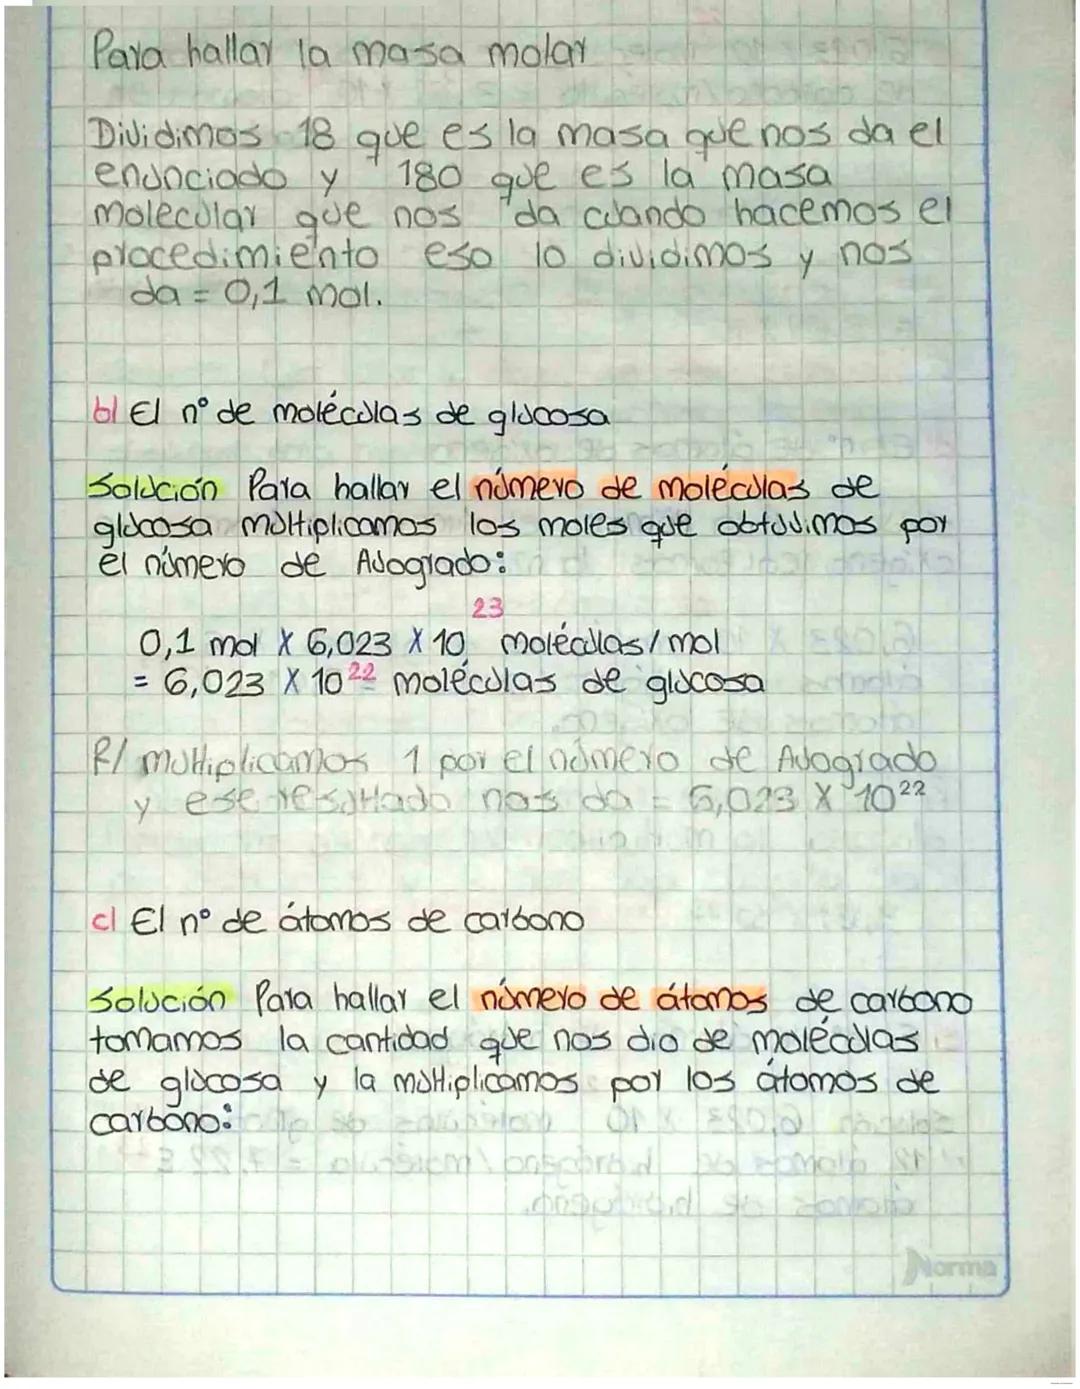 Para hallar la masa molar
Dividimos 18 que es la masa que nos da el
enunciado y 180 que es la masa
molecular que nos da cuando hacemos el
procedimiento eso lo dividimos y nos
da = 0,1 mol.
b) El n° de moléculas de glucosa
Solución Para hallar el número de moléculas de
glucosa multiplicamos los moles que obtuvimos por
el número de Avogrado:
0,1 mol X 6,023 X 10²³ moléculas/mol
= 6,023 X 10²² moléculas de glucosa
R/ multiplicamos 1 por el número de Avogrado
y ese resultado nos da = 6,023 X 10²²
c) El n° de átomos de carbono
Solución Para hallar el número de átomos de carbono
tomamos la cantidad que nos dio de moléculas
de glucosa y la multiplicamos por los átomos de
carbono:
Norma